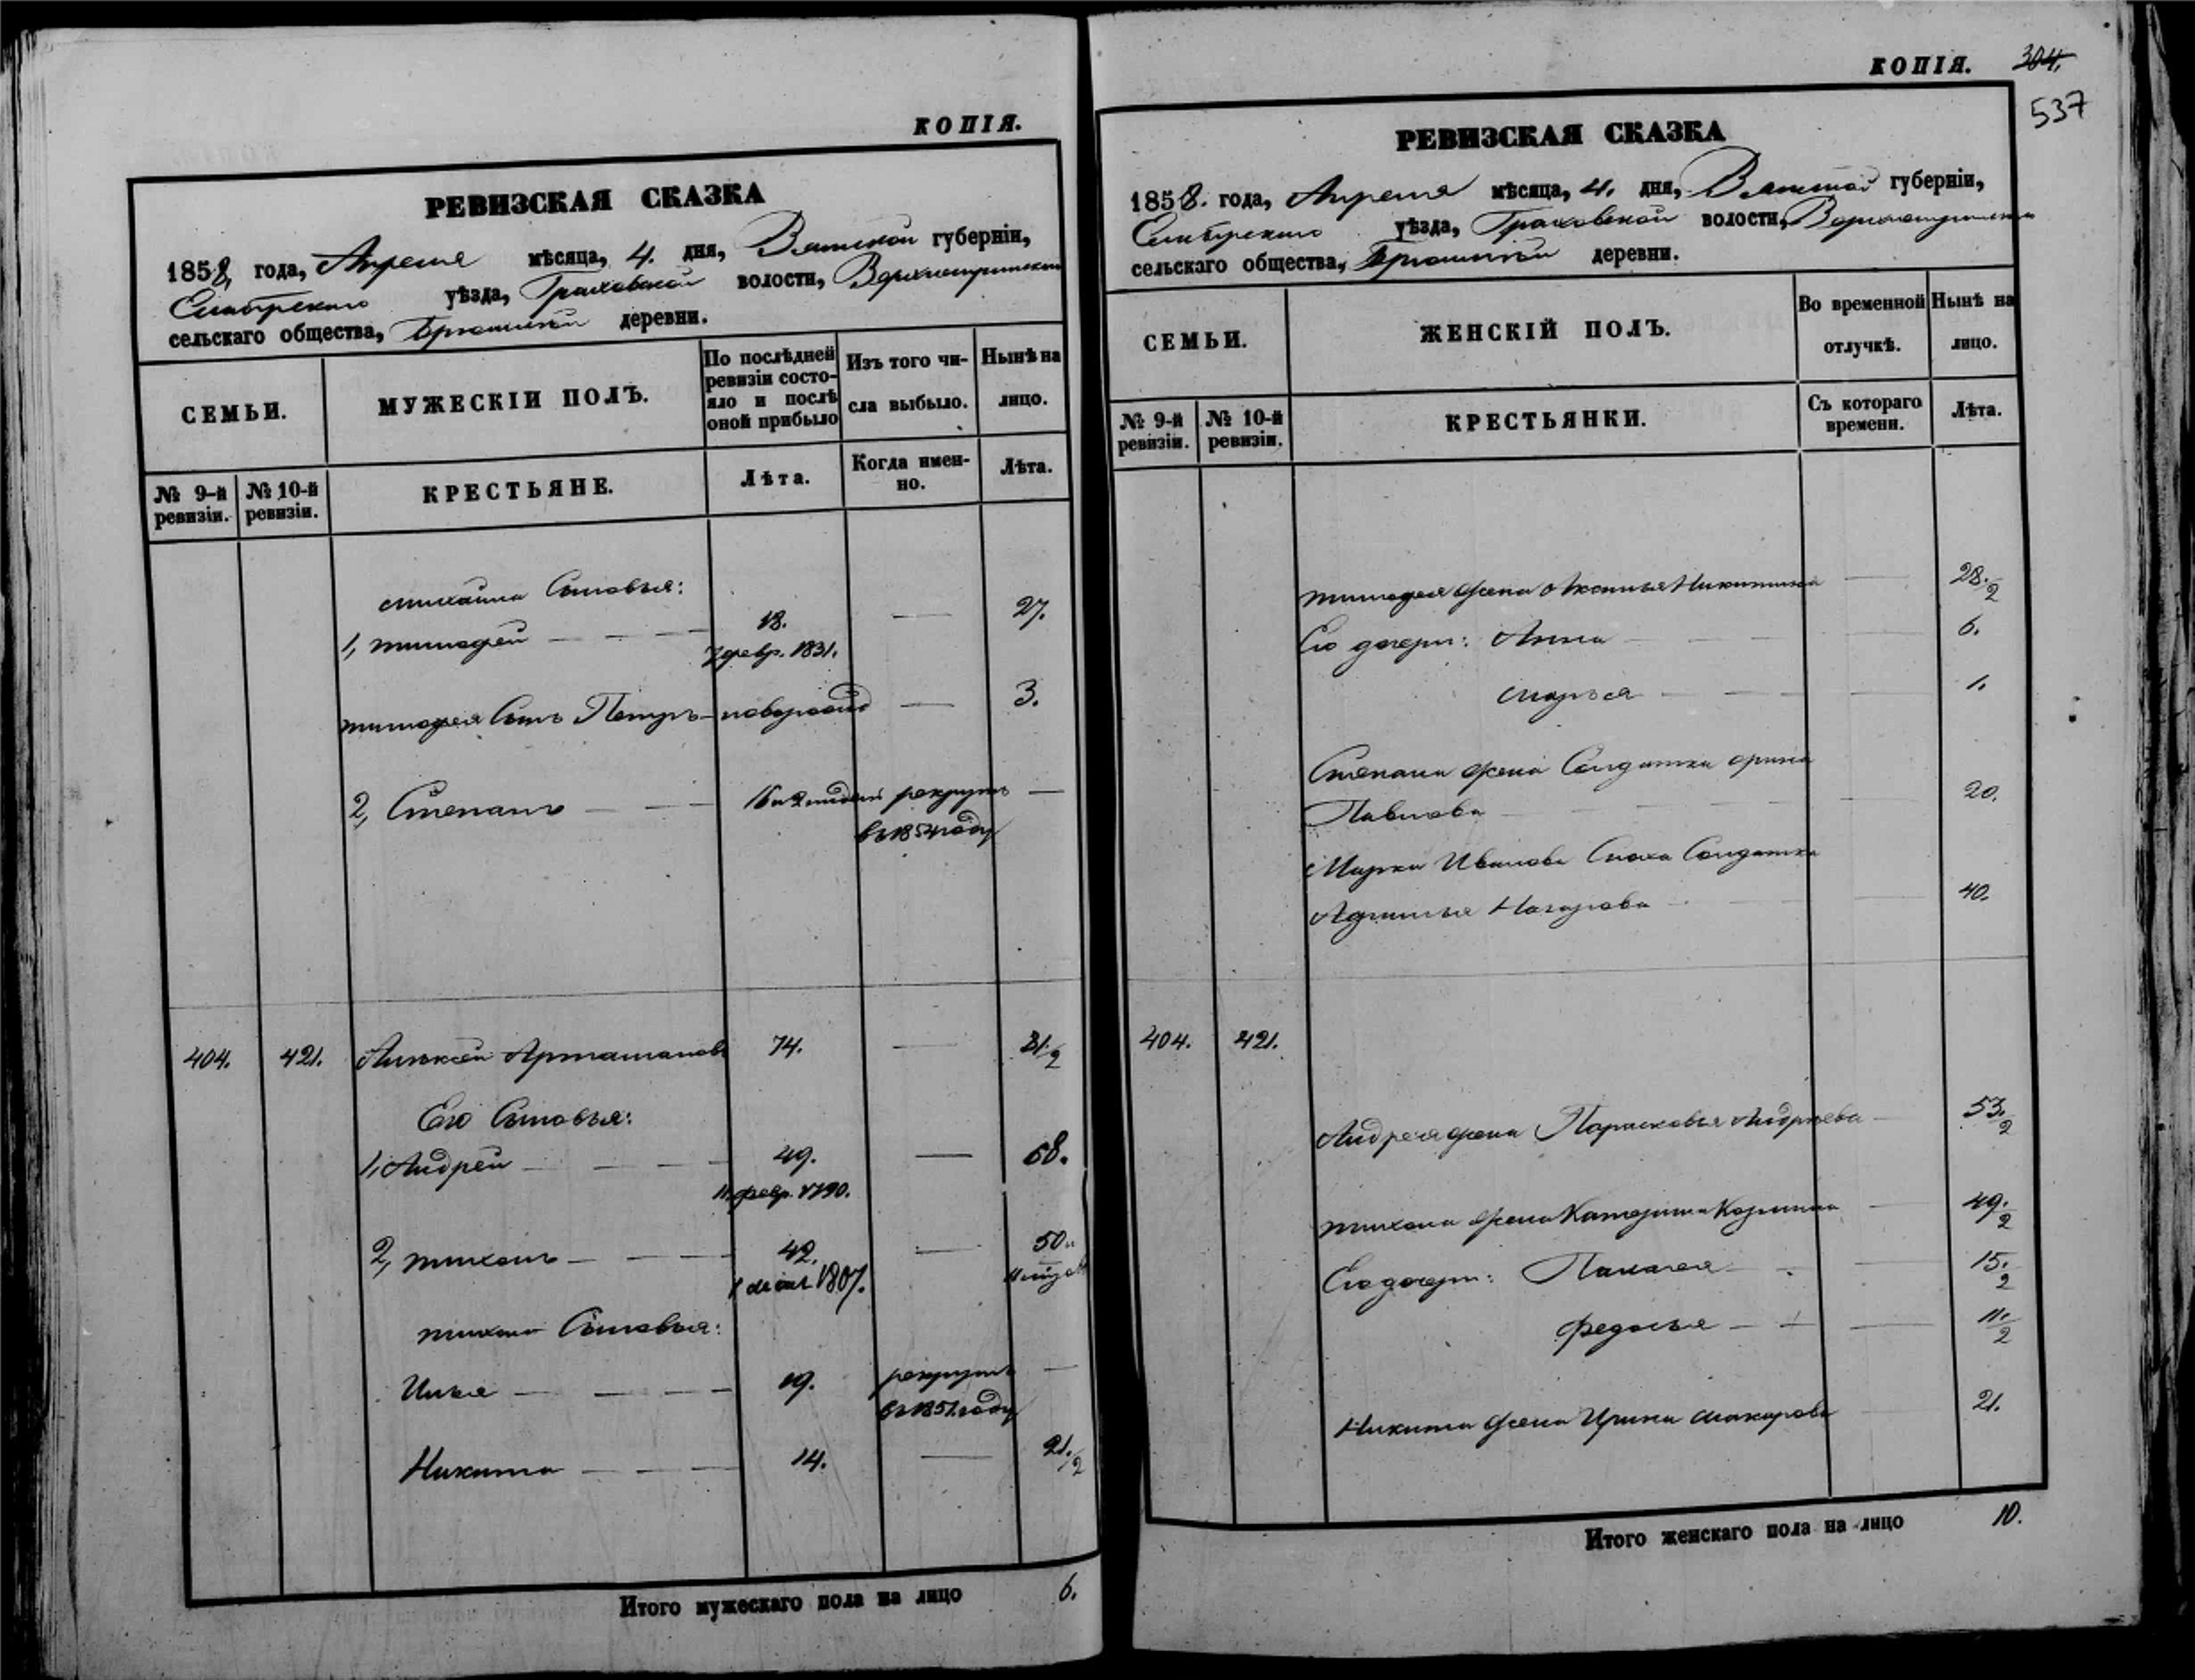 КОПІЯ.
РЕВИЗСКАЯ СКАЗКА
1858, года, Апреля мѣсяца, 4. дня, Вятской губерніи,
уѣзда, Граховской волости,
сельскаго общества, деревни.
СЕМЬИ.
МУЖЕСКІЙ ПОЛЪ.
По послѣдней
ревизіи состо-
яло и послѣ
оной прибыло
Изъ того чи-
сла выбыло.
Нынѣ на
лицо.
№ 9-й
ревизіи.
№ 10-й
ревизіи.
КРЕСТЬЯНЕ.
Лѣта.
Когда имен-
но.
Лѣта.
Михаила Сыновья:
1, Тимофей — — — 18. — 27.
7 февр. 1831.
Тимофея Сынъ Петръ — новорожд — 3.
2, Степанъ — — рекрутъ —
въ 1854 году
404. 421. Алексѣй 74. — 81/2
Его Сыновья:
1, Андрей — — — 49. — 58.
2, Тихонъ — — — 42. — 50.
1807.
Тихона Сыновья:
Илья — — — 19. рекрутъ —
въ 1851 году
Никита — — — 14. — 21./2
Итого мужескаго пола на лицо 6.
КОПІЯ. 304.
537
РЕВИЗСКАЯ СКАЗКА
1858. года, Апреля мѣсяца, 4. дня, Вятской губерніи,
уѣзда, Граховской волости,
сельскаго общества, деревни.
СЕМЬИ.
ЖЕНСКІЙ ПОЛЪ.
Во временной
отлучкѣ.
Нынѣ на
лицо.
№ 9-й
ревизіи.
№ 10-й
ревизіи.
КРЕСТЬЯНКИ.
Съ котораго
времени.
Лѣта.
Тимофея жена Аксинья Никитина — 28./2
Его дочери: Анна — — — 6.
Марья — — — 1.
Степана жена Солдатка Арина
Павлова — 20.
Марка Иванова Сноха Солдатка
Назарова — 40.
404. 421.
Андрея жена Парасковья Андреева — 53./2
Тихона жена Катерина — 49./2
Его дочери: Палагея — 15./2
Федосья — — — 11./2
Никиты жена Ирина Макарова — 21.
Итого женскаго пола на лицо 10.